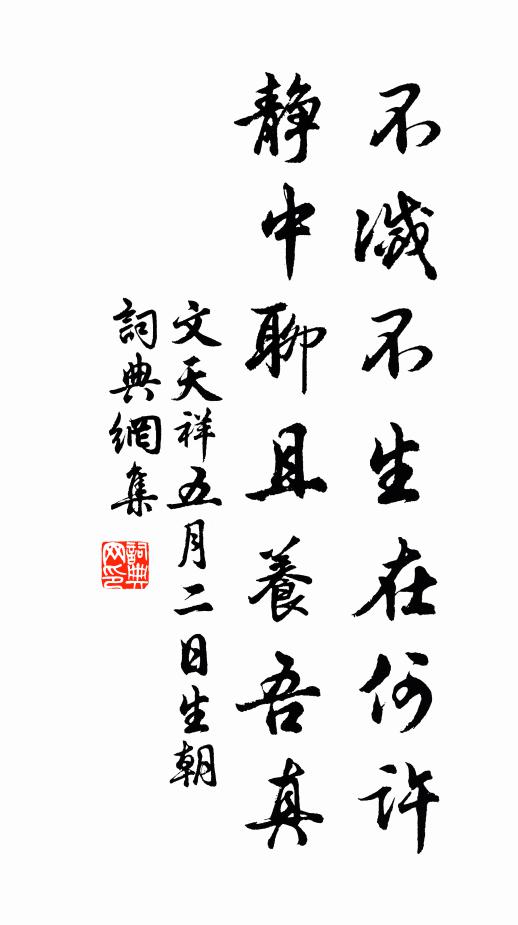 不滅不生在何許
静中聊且養吾真
文天祥五月二日生朝
詞典網集
詞典
网印